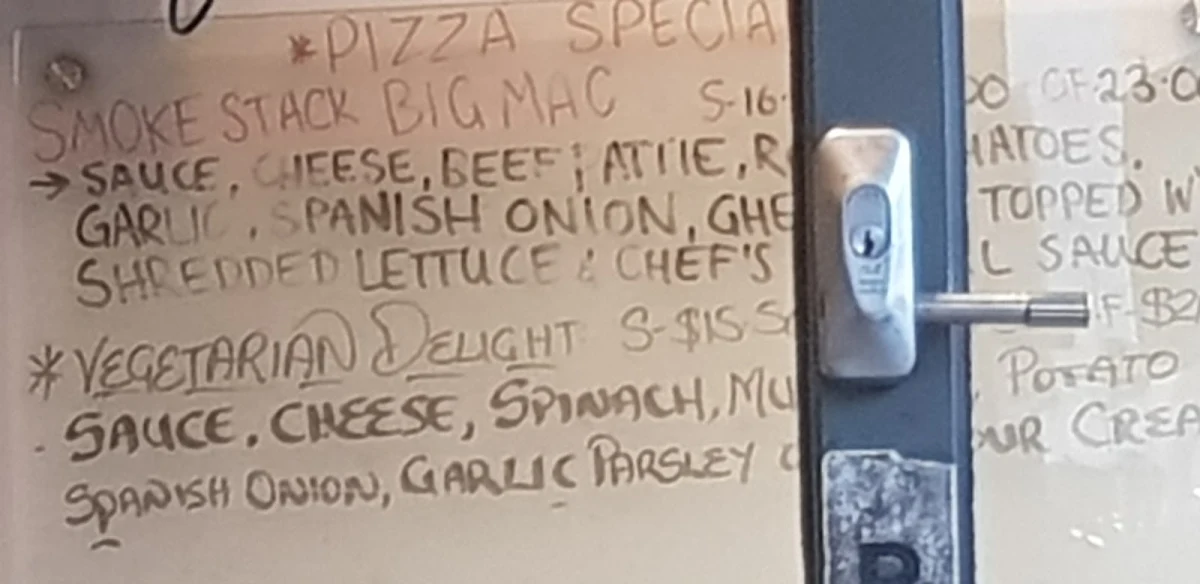 *PIZZA SPECIA
SMOKE STACK BIG MAC S-16. OF-23.0
→ SAUCE, CHEESE, BEEF PATTIE, R MATOES,
GARLIC, SPANISH ONION, GHE TOPPED W
SHREDDED LETTUCE & CHEF'S L SAUCE
*VEGETARIAN DELIGHT S-$15.5 F-$2
. SAUCE, CHEESE, SPINACH, MU , POTATO
SPANISH ONION, GARLIC PARSLEY OUR CREA